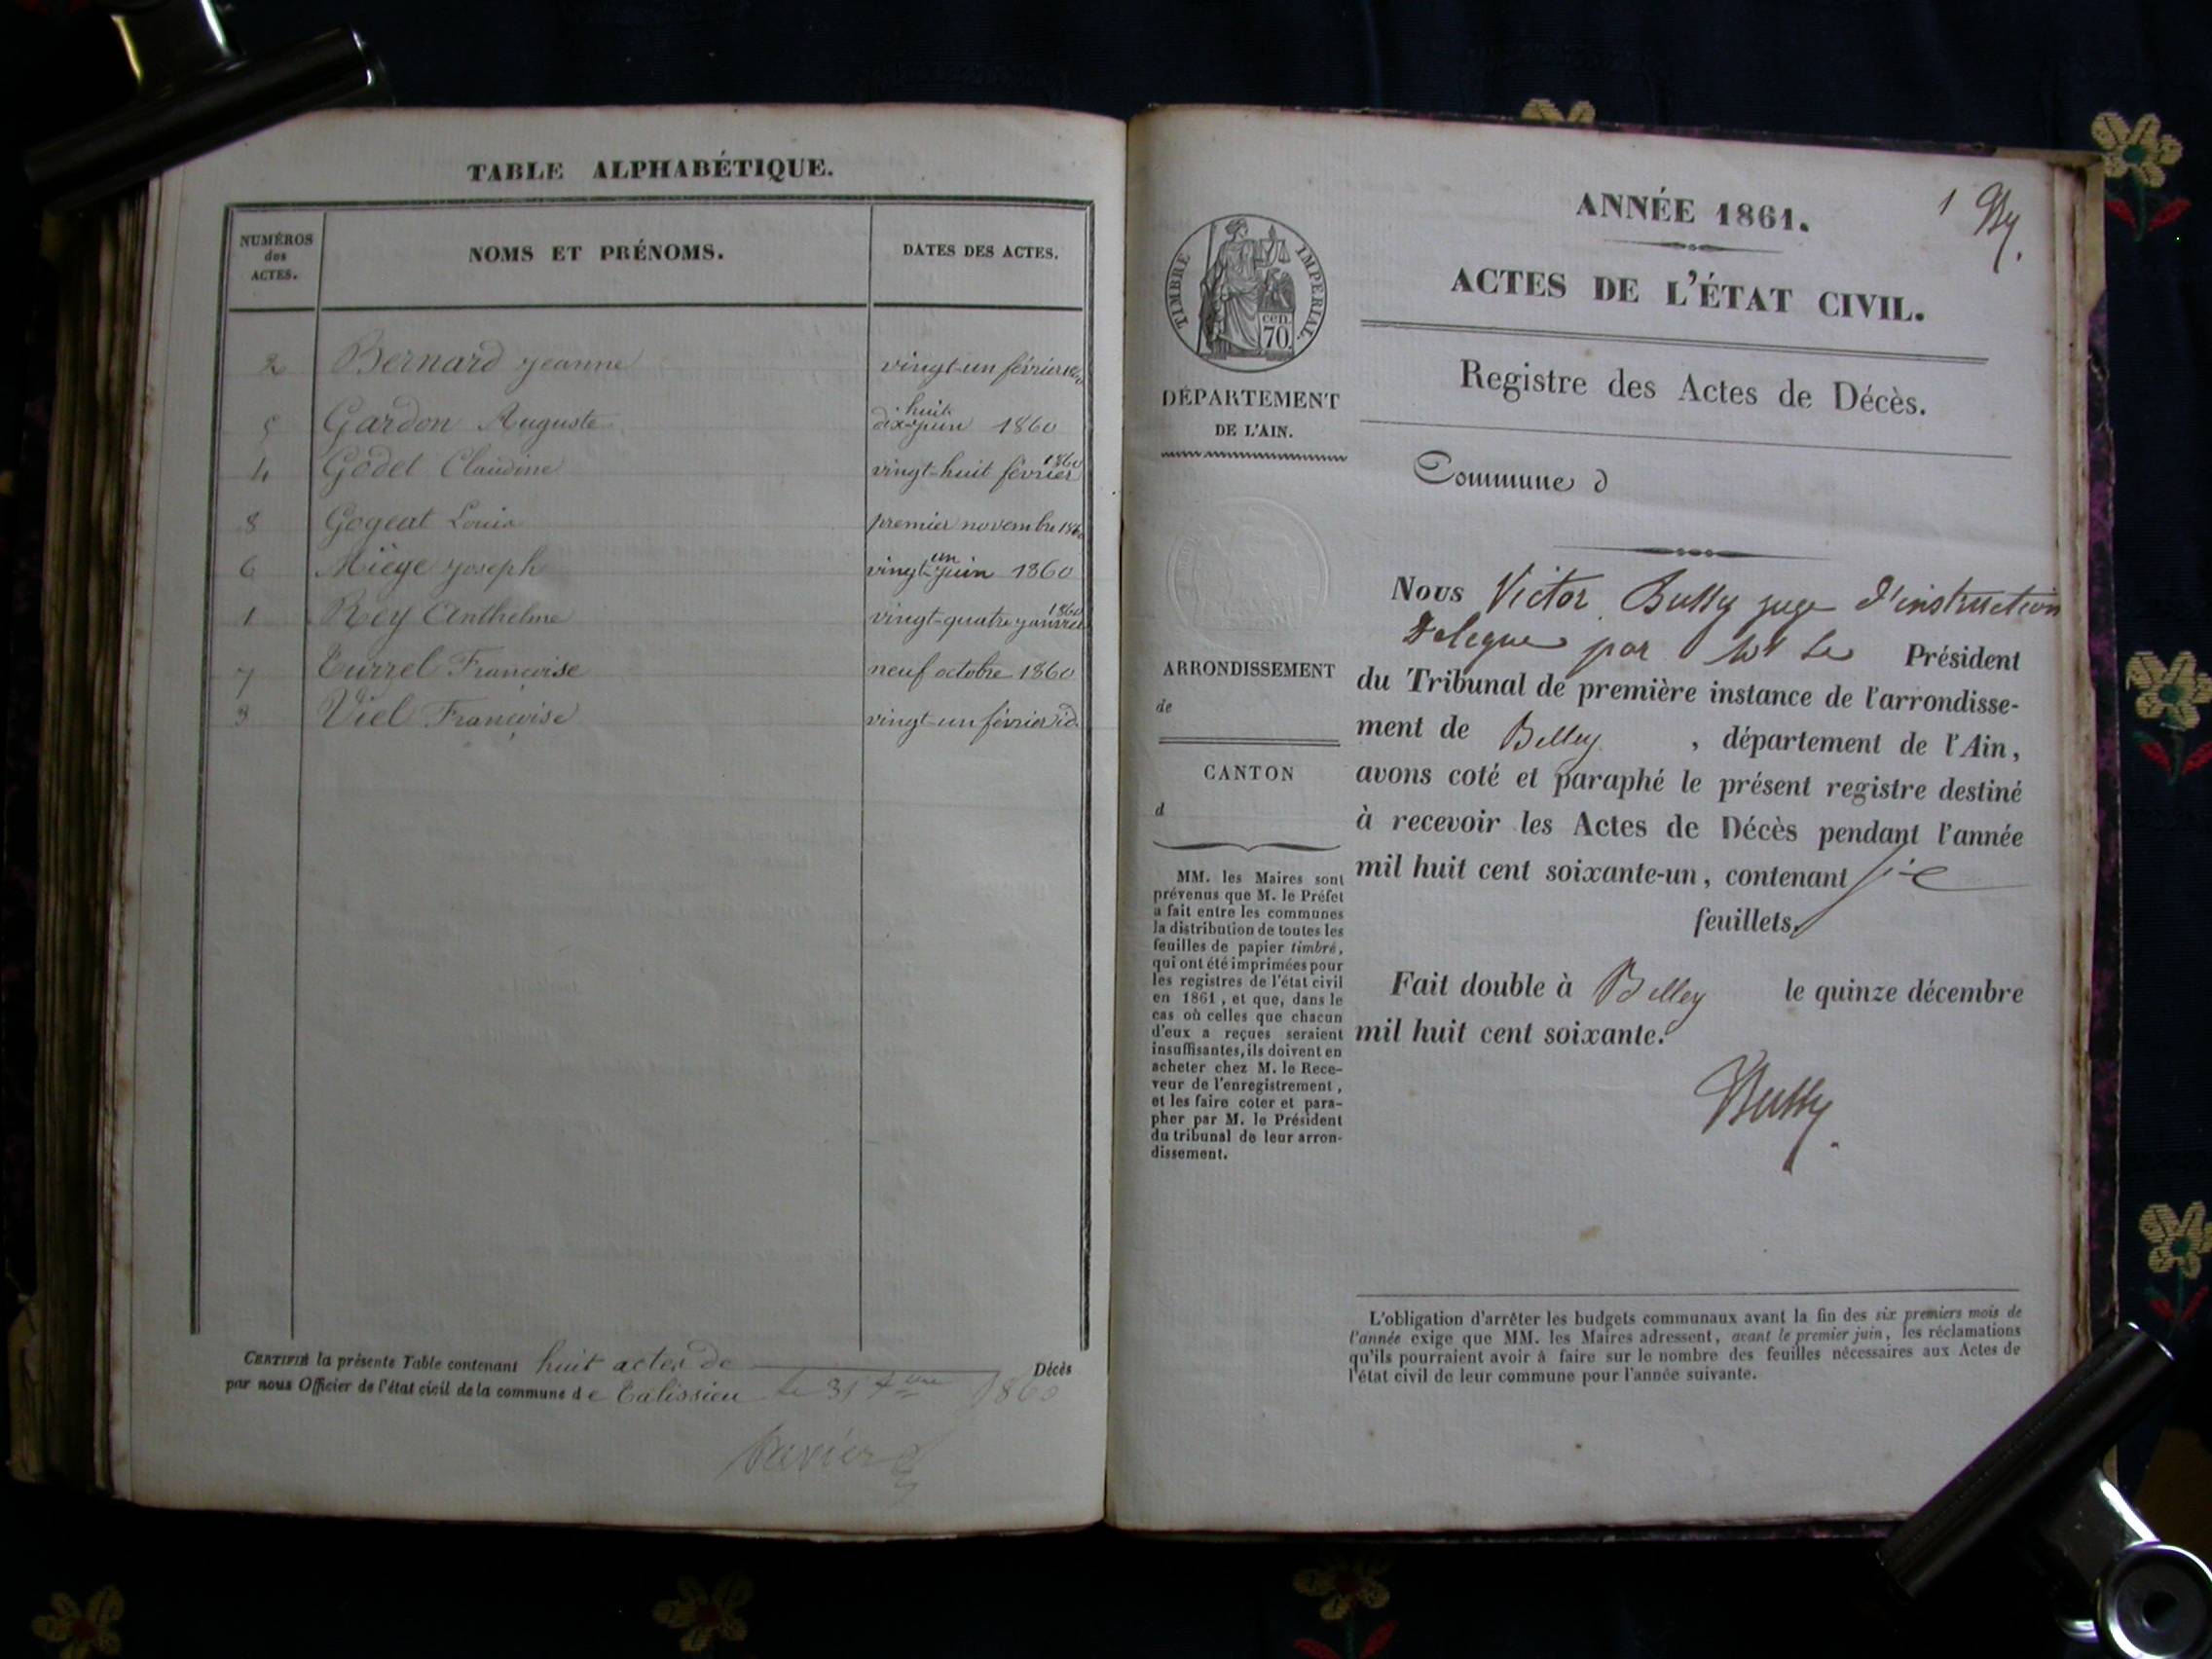 TABLE ALPHABÉTIQUE.
NUMÉROS
des
ACTES.
NOMS ET PRÉNOMS.
DATES DES ACTES.
2 Bernard Jeanne vingt-un février 1860
5 Gardon Auguste dix-huit juin 1860
4 Godet Claudine vingt-huit février 1860
8 Gogeat Louis premier novembre 1860
6 Miège Joseph vingt-un juin 1860
1 Rey Anthelme vingt-quatre janvier 1860
7 Turrel Françoise neuf octobre 1860
3 Viel Françoise vingt-un février id.
CERTIFIÉ la présente Table contenant huit actes de Décès
par nous Officier de l'état civil de la commune de Talissieu le 31 Xbre 1860
1 By.
ANNÉE 1861.
ACTES DE L'ÉTAT CIVIL.
Registre des Actes de Décès.
Commune d
TIMBRE IMPERIAL.
cen.
70.
DÉPARTEMENT
DE L'AIN.
ARRONDISSEMENT
de
CANTON
d
MM. les Maires sont
prévenus que M. le Préfet
a fait entre les communes
la distribution de toutes les
feuilles de papier timbré,
qui ont été imprimées pour
les registres de l'état civil
en 1861, et que, dans le
cas où celles que chacun
d'eux a reçues seraient
insuffisantes, ils doivent en
acheter chez M. le Rece-
veur de l'enregistrement,
et les faire coter et para-
pher par M. le Président
du tribunal de leur arron-
dissement.
Nous Victor Bussy juge d'instruction
Delegue par Mr Le Président
du Tribunal de première instance de l'arrondisse-
ment de Belley, département de l'Ain,
avons coté et paraphé le présent registre destiné
à recevoir les Actes de Décès pendant l'année
mil huit cent soixante-un, contenant
feuillets.
Fait double à Belley le quinze décembre
mil huit cent soixante.
Bussy.
L'obligation d'arrêter les budgets communaux avant la fin des six premiers mois de
l'année exige que MM. les Maires adressent, avant le premier juin, les réclamations
qu'ils pourraient avoir à faire sur le nombre des feuilles nécessaires aux Actes de
l'état civil de leur commune pour l'année suivante.